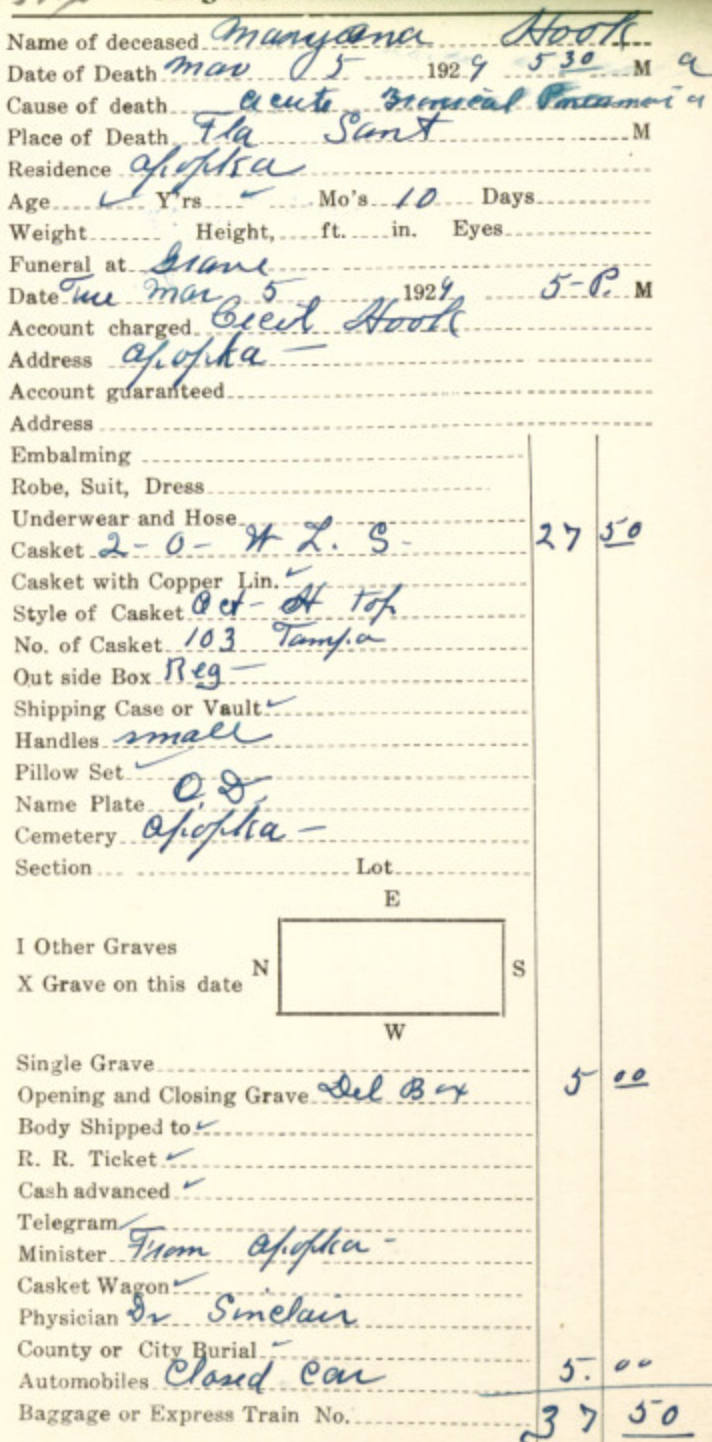 Name of deceased Maryanna Hook
Date of Death Mar 5 1929 5 30 M a
Cause of death acute Bronical Pneumonia
Place of Death Fla Sant M
Residence apopka
Age ✓ Y'rs ✓ Mo's 10 Days
Weight Height, ft. in. Eyes
Funeral at Grave
Date Tue Mar 5 1929 5-P. M
Account charged Cecil Hook
Address apopka -
Account guaranteed
Address
Embalming
Robe, Suit, Dress
Underwear and Hose
Casket 2-0- W L. S- 27 50
Casket with Copper Lin. ✓
Style of Casket Oct- H top
No. of Casket 103 Tampa
Out side Box Reg -
Shipping Case or Vault ✓
Handles small
Pillow Set ✓
Name Plate O. D.
Cemetery apopka -
Section Lot
E
I Other Graves
N S
X Grave on this date
W
Single Grave
Opening and Closing Grave Del Box 5 00
Body Shipped to ✓
R. R. Ticket ✓
Cash advanced ✓
Telegram ✓
Minister From apopka -
Casket Wagon ✓
Physician Dr Sinclair
County or City Burial ✓
Automobiles Closed Car 5. 00
Baggage or Express Train No. 37 50